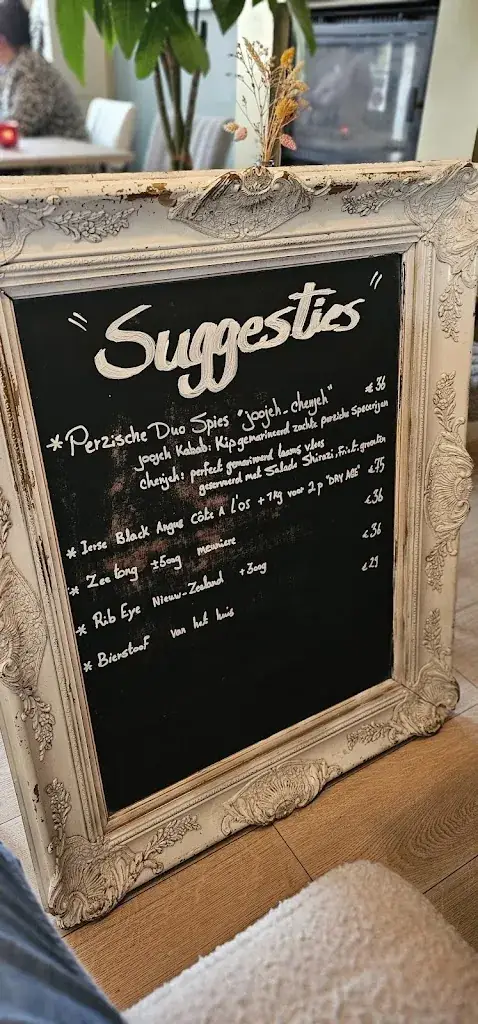 " Suggesties "
* Perzische Duo Spies "joojeh_chenjeh" € 36
joojeh Kabab: Kip gemarineerd zachte perzische Specerijen
Chenjeh: perfect gemarineerd laams vlees
geserveerd met Salade Shirazi, Friet, groenten
* Ierse Black Angus Côte A L'os +1kg voor 2p "DRY AGE" €75
* Zeetong ±500g meuniere €36
* Rib Eye Nieuw-Zeeland +300g €36
* Bierstoof van het huis €29